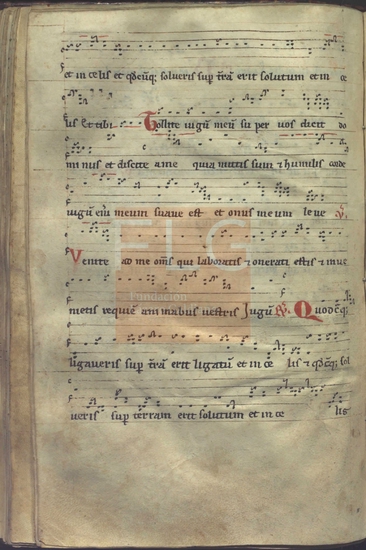 et in celis et qdcuq; solueris sup t̄rā erit solutum et in ce
lis Et tibi Tollite iugū meū su per uos dicit do
mi nus et discite a me quia mitis sum ⁊ humilis corde
iugū eni meum suaue est et onus meum leue
Venite ad me om̄s qui laboratis ⁊ onerati estis ⁊ inue
nietis requiē animabus uestris Iugū Quodcq;
ligaueris sup t̄rā erit ligatū et in ce lis ⁊ qdcq; sol
ueris sup terram erit solutum et in ce lis
FLG
Fundación